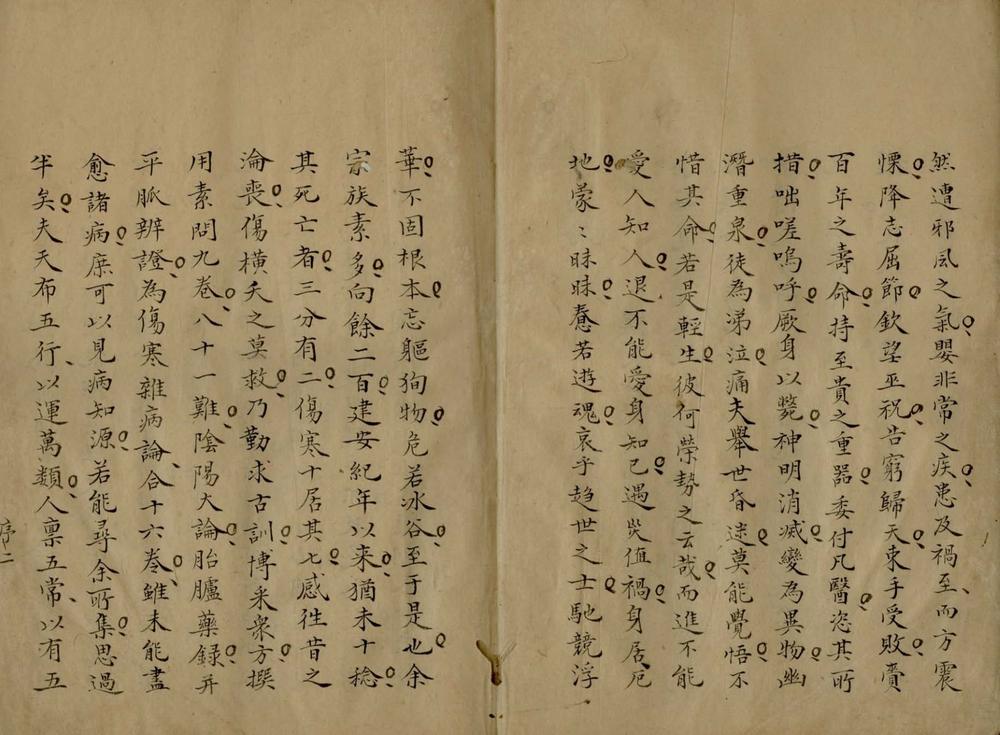 然遭邪風之氣嬰非常之疾患及禍至而方震
慄降志屈節欽望巫祝告窮歸天束手受敗賫
百年之壽命持至貴之重器委付凡醫恣其所
措咄嗟嗚呼厥身以斃神明消滅變為異物幽
潛重泉徒為涕泣痛夫舉世昏迷莫能覺悟不
惜其命若是輕生彼何榮勢之云哉而進不能
愛人知人退不能愛身知己遇災值禍身居厄
地蒙〻昧昧惷若遊魂哀乎趨世之士馳競浮
華不固根本忘軀徇物危若冰谷至于是也余
宗族素多向餘二百建安紀年以来猶未十稔
其死亡者三分有二傷寒十居其七感徃昔之
淪喪傷橫夭之莫救乃勤求古訓博采衆方撰
用素問九卷八十一難陰陽大論胎臚藥録并
平脈辨證為傷寒雜病論合十六卷雖未能盡
愈諸病庶可以見病知源若能尋余所集思過
半矣夫天布五行以運萬類人禀五常以有五
序二